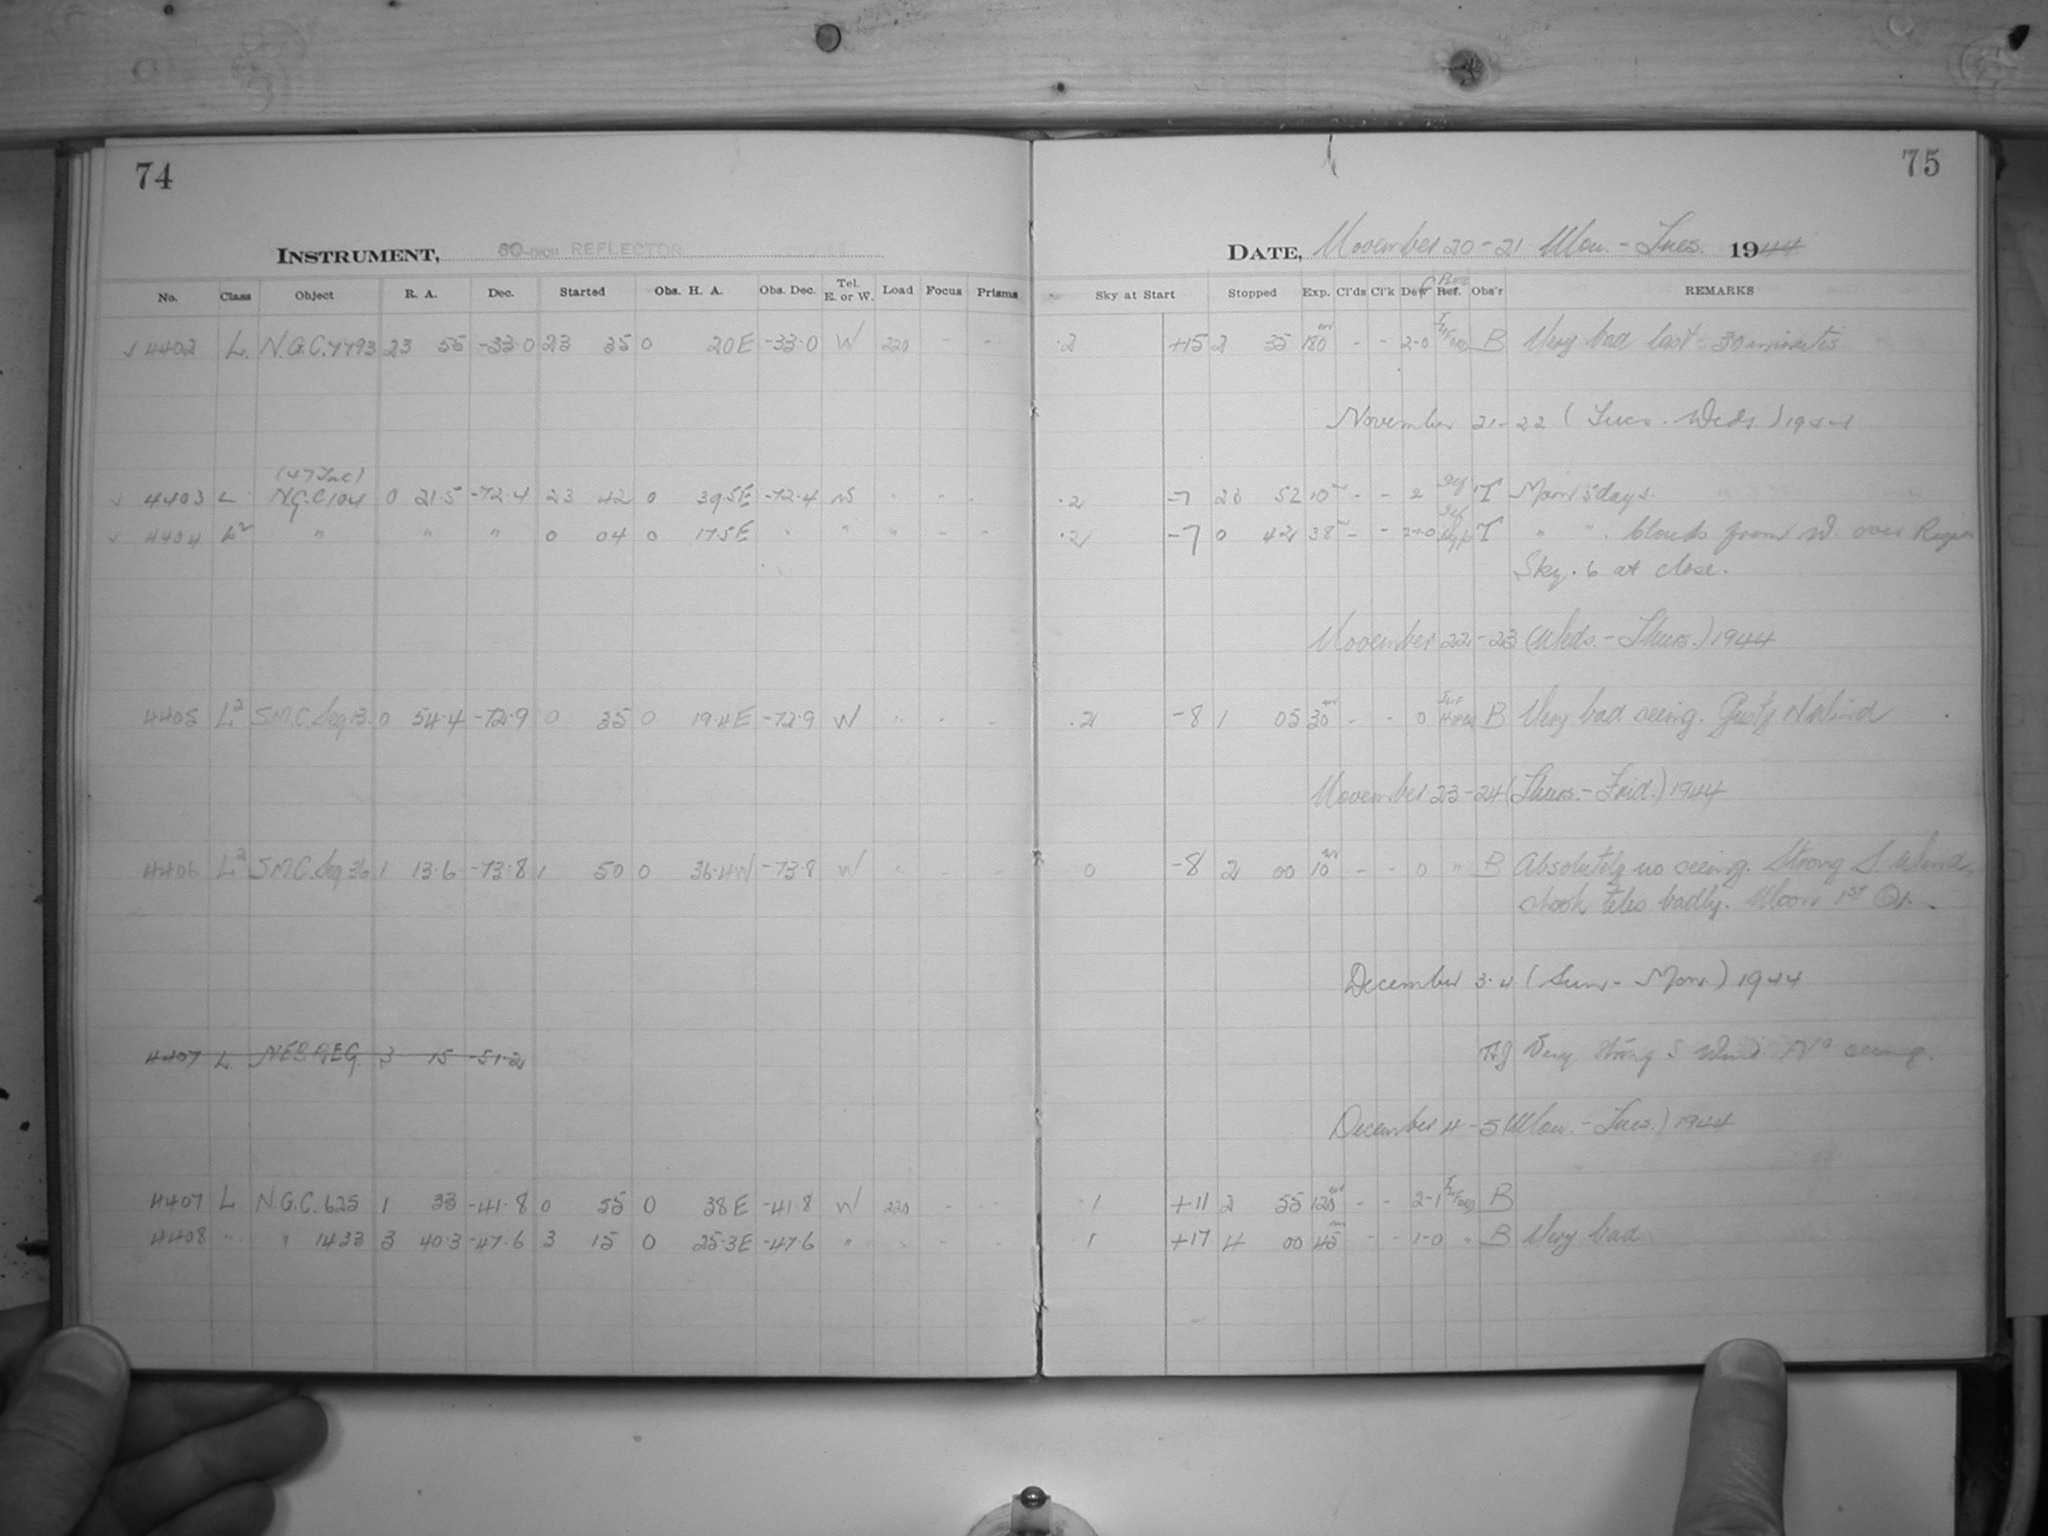 74
INSTRUMENT, 60-INCH REFLECTOR
No. Class Object R. A. Dec. Started Obs. H. A. Obs. Dec. Tel. E. or W. Load Focus Prisms
4402 L. N.G.C. 7793 23 55 -33.0 23 35 0 20E -33.0 W 220 - - -
(47 Tuc)
4403 L N.G.C 104 0 21.5 -72.4 23 42 0 39.5E -72.4 W " - -
4404 L2 " " " 0 04 0 17.5E " " "
4405 L2 S.M.C. Seq 13. 0 54.4 -72.9 0 35 0 19.4E -72.9 W " - -
4406 L2 S.M.C. Seq 36 1 13.6 -73.8 1 50 0 36.4W -73.8 W " - -
4407 L. 3 15 -51.2
4407 L N.G.C. 625 1 33 -41.8 0 55 0 38E -41.8 W 220 - -
4408 " " 1433 3 40.3 -47.6 3 15 0 25.3E -47.6 " " - -
75
DATE, November 20-21 Mon. - Tues. 1944
Sky at Start Stopped Exp. Cl'ds Cl'k Dew Ref. Obs'r REMARKS
.2 +15 2 35 180 - - 2-0 B Very bad last 30 minutes
November 21-22 (Tues. - Weds.) 1944
.2 -7 23 52 10 - - 2 T Moon 5 days.
.2 -7 0 42 38 - - 2-0 T " " . Clouds from W. over Region
Sky .6 at close.
November 22-23 (Weds. - Thurs.) 1944
.2 -8 1 05 30 - - 0 B Very bad seeing. Gusty N Wind
November 23-24 (Thurs. - Frid.) 1944
0 -8 2 00 10 - - 0 " B Absolutely no seeing. Strong S. Wind
shook teles badly. Moon 1st Qr.
December 3-4 (Sun - Mon.) 1944
Very strong S Wind No seeing.
December 4-5 (Mon. - Tues.) 1944
1 +11 2 55 120 - - 2-1 B
1 +17 4 00 45 - - 1-0 " B Very bad